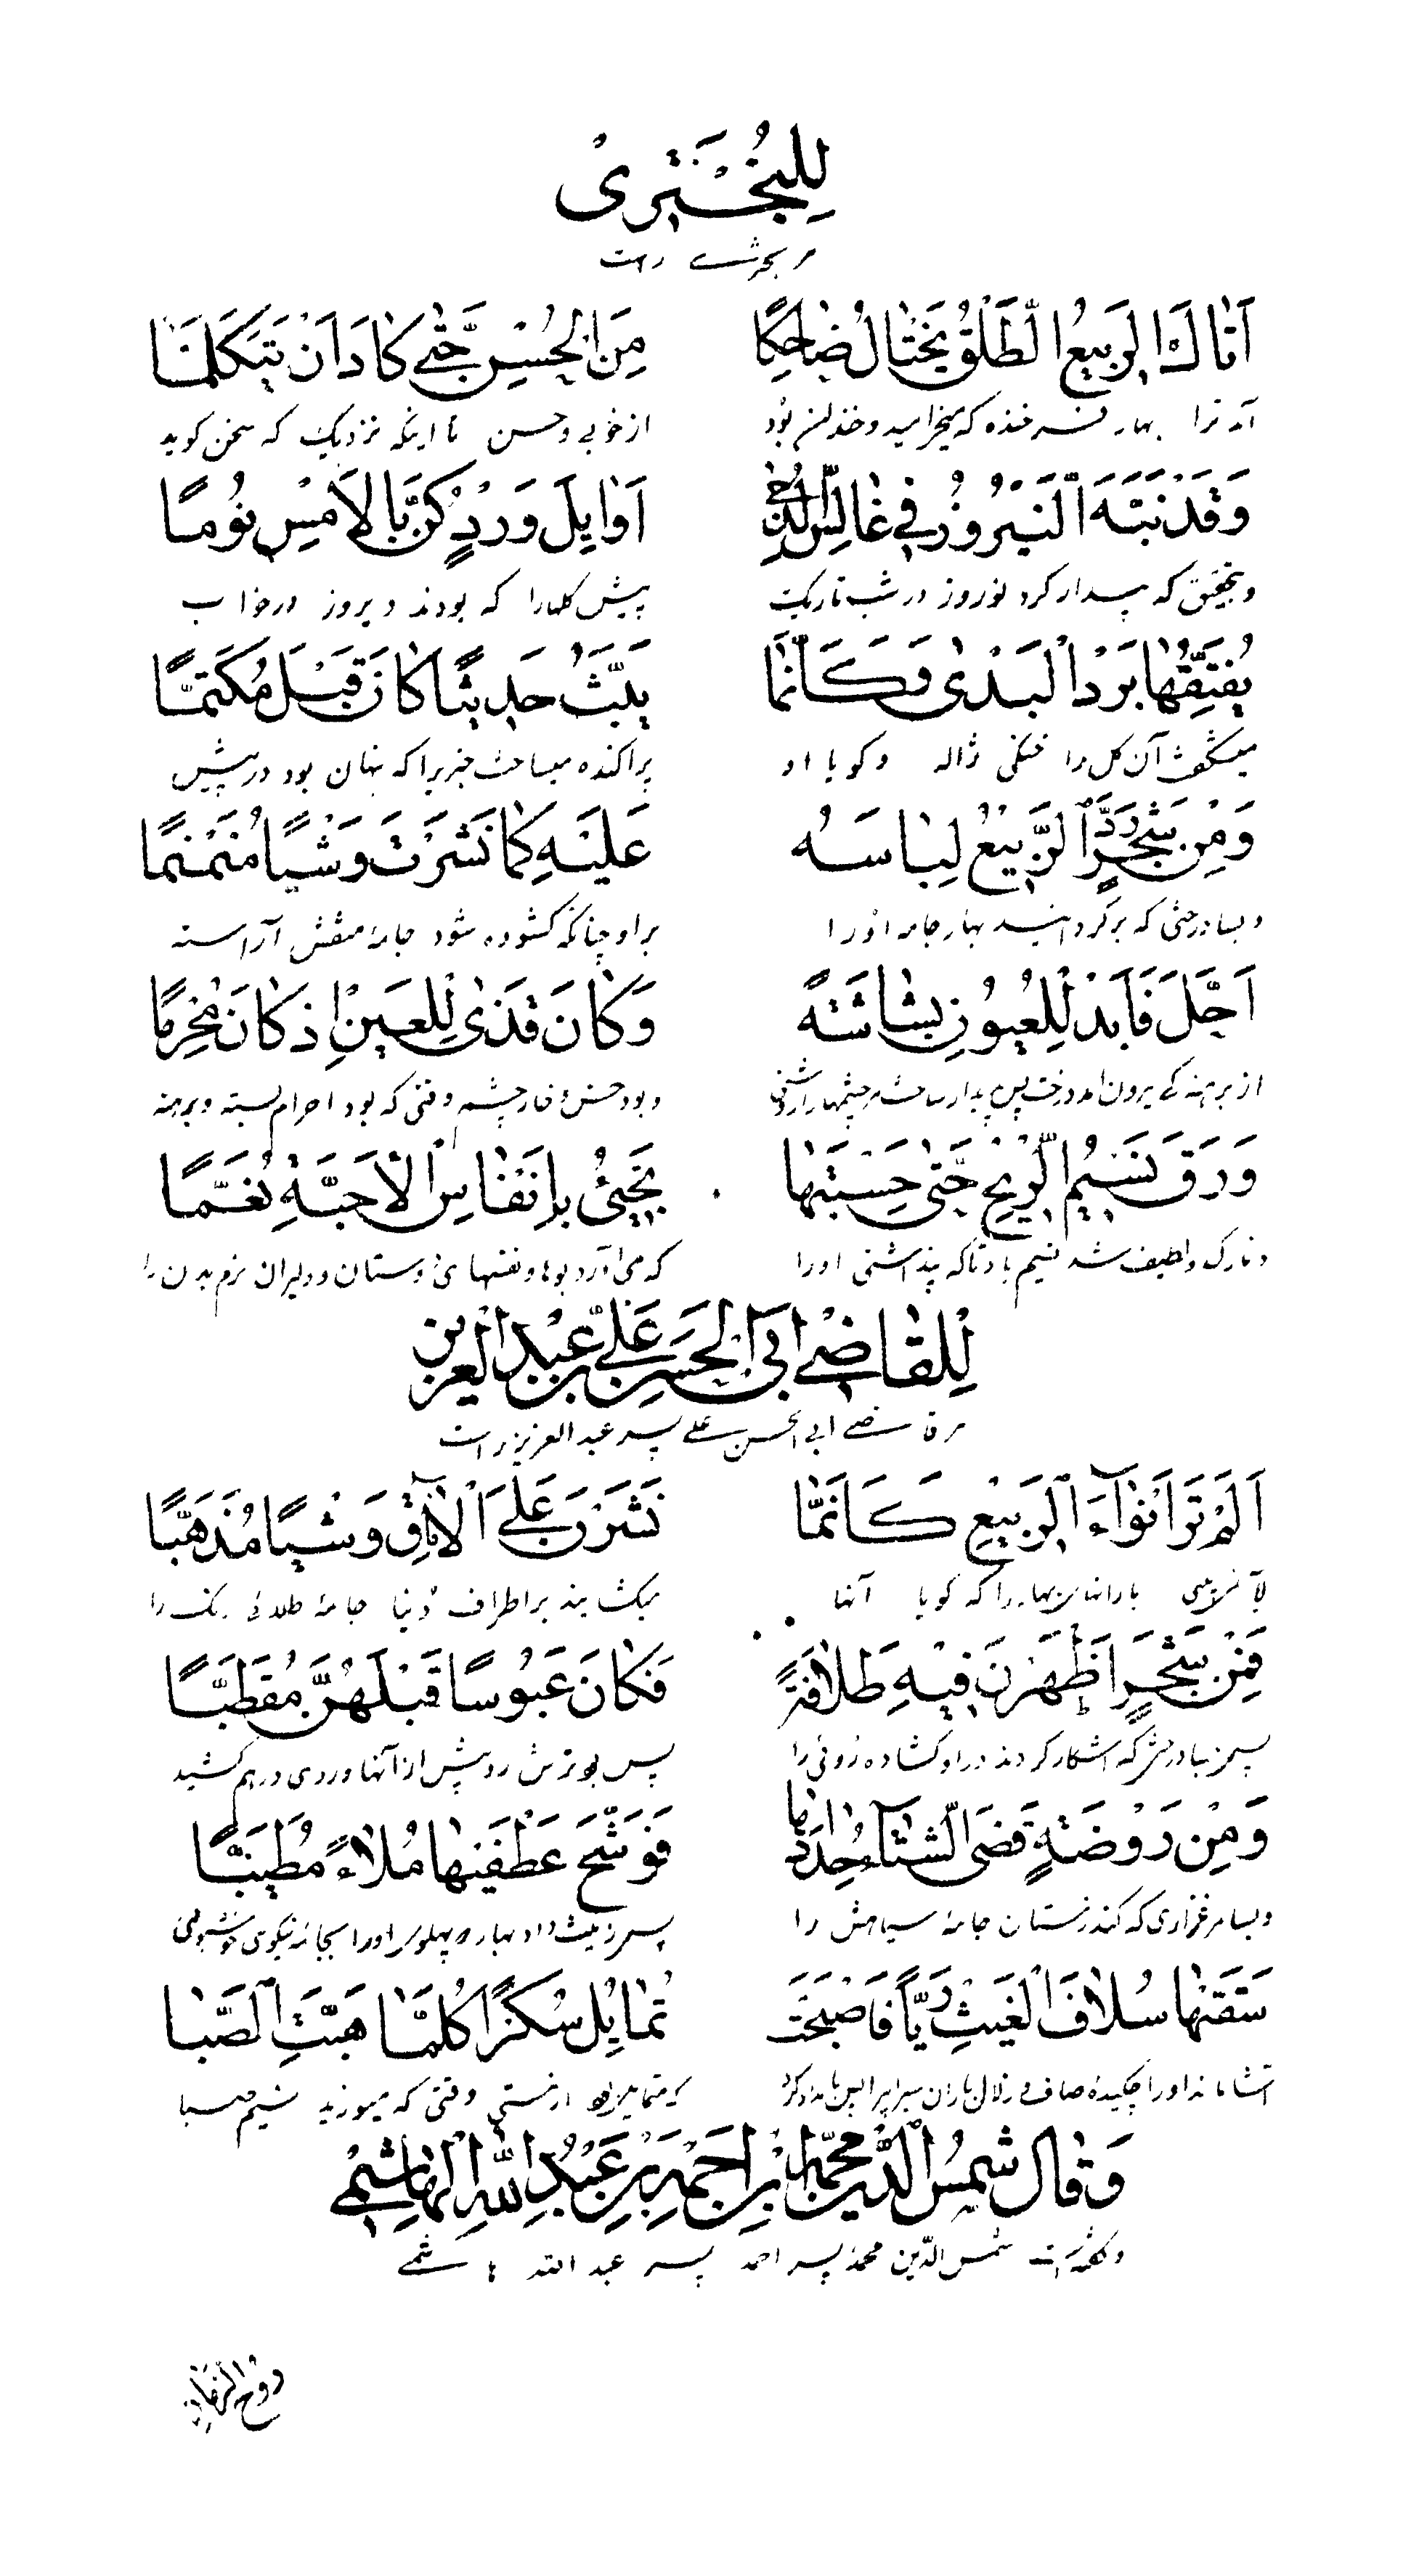 لِلبُحْتَرِىْ
مر بحترى راست
اَتٰاكَ الرَبيعُ الطَّلْقُ يَخْتٰالُ ضٰاحِكًا مِنَ الْحُسْنِ حَتّٰى كٰادَ اَنْ يَتَكَلَّمَا
آمد ترا بهار خنده كه ميخراميد و خندان بود از خوبى و حسن تا اينكه نزديك كه سخن كويد
وَقَدْ نَبَّهَ النَيْرُوزُ فِى غٰالِسِ الدُّجٰى اَوٰايِلَ وَرْدٍ كُنَّ بِالاَمْسِ نُومًا
و بتحقيق كه بيدار كرد نوروز در شب تاريك پيش كلها را كه بودند ديروز در خواب
يُفَتِّقُهٰا بَرْدُ الْنَدٰى وَكَاَنَّمٰا يَبُثُّ حَديثًا كٰانَ قَبْلَ مُكَتَّمًا
ميشكفت آن كل را خنكى ژاله و كويا او پراكنده ميساخت خبريرا كه پنهان بود در پيش
وَمِنْ شَجَرٍ رَدَّ الرَّبيْعُ لِبٰاسَهُ عَلَيْهِ كَمٰا نَشَرْتَ وَشْيًا مُنَمْنَمًا
و بسا درختى كه بركردانيد بهار جامه او را بر او چنانكه كشوده شود جامۀ منقش آراسته
اَحَلَّ فَاَبْدٰ لِلْعُيُونِ بَشٰاشَتَهً وَكٰانَ قَذٰى لِلْعَيْنِ اِذْ كٰانَ مُحْرِمًا
از برهنه كى بيرون امد درخت پس پديدار ساخت مر چشمها را روشنى و بود خس و خار چشم وقتى كه بود احرام بسته و برهنه
وَرَقَّ نَسيْمُ الرّيْحِ حَتّٰى حَسْبَتَهٰا يَجِيْئُ بِاَنْفٰاسِ الْاَحَبَّةِ نُعَّمًا
و نازك و لطيف شد نسيم باد تا كه پنداشتى او را كه مى آورد بوها و نفسهاى دوستان و دلبران نرم بدن را
لِلْقٰاضِى اَبِى الْحَسَنِ عَلىِّ بْنِ عَبْدِ الْعَزيزِ
مر قاضى ابى الحسن على پسر عبد العزيز راست
اَلَمْ تَرَ اَنْوٰآءَ الرَبيْعِ كَاَنَّمٰا نَشَرْنَ عَلَى الْاٰفٰاقِ وَشْيًا مُذَهَّبًا
آيا نمى بينى بارانهاى بهار را كه كويا آنها ميكشايند بر اطراف دنيا جامۀ طلائى رنك را
فَمِنْ شَجَرٍ اَظْهَرْنَ فيْهِ طَلٰاقَةً فَكٰانَ عَبُوسًا قَبْلَهُنَّ مُقَطَّبًا
پس بسا درختى كه اشكار كردند در او كشاده روئى را پس بود ترش رو پيش از آنها و روى در هم كشيد
وَمِنْ رَوْضَةٍ قَضَى الشِّتٰآءُ حِدٰادَهٰا فَوَشَّحَ عَطْفَيْهٰا مُلٰاءً مُطَيَّبًا
و بسا مرغزارى كه كند زمستان جامۀ سياهش را پس زينت داد بهار دو پهلوى او را بجامۀ نيكوى خوشبوئى
سَقَتْهٰا سُلٰافَ الْغَيْثِ رَيًّا فَاَصْبَحَتْ تَمٰايَلُ سُكْرًا كُلَّمٰا هَبَّتِ الصَّبٰا
اشامانند او را چكيدۀ صاف و زلال باران پس بامداد كرد كه متمايل بود از مستى وقتى كه ميوزيد نسيم صبا
وَقٰالَ شَمْسُ الدّينِ مُحَمَّدُ ابْنِ اَحْمَدِ بْنِ عَبْدِ اللهِ الْهٰاشِمْى
و گفته است شمس الدّين محمد پسر احمد پسر عبد الله هاشمى